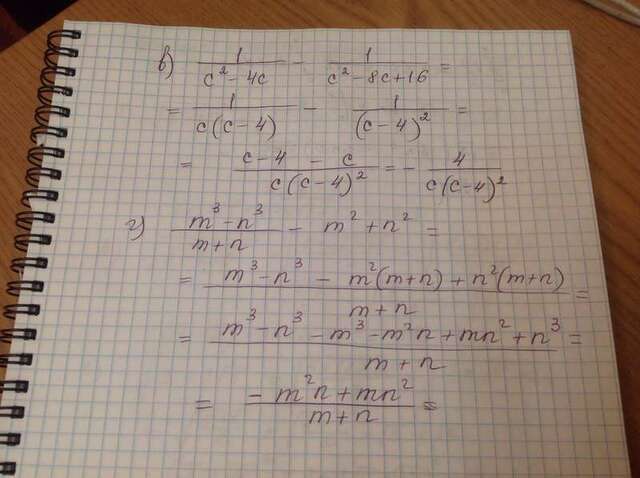 в) 1/(c² - 4c) - 1/(c² - 8c + 16) =
= 1/(c(c - 4)) - 1/(c - 4)² =
= (c - 4 - c)/(c(c - 4)²) = - 4/(c(c - 4)²)
г) (m³ - n³)/(m + n) - m² + n² =
= (m³ - n³ - m²(m + n) + n²(m + n))/(m + n) =
= (m³ - n³ - m³ - m²n + mn² + n³)/(m + n) =
= (- m²n + mn²)/(m + n) =